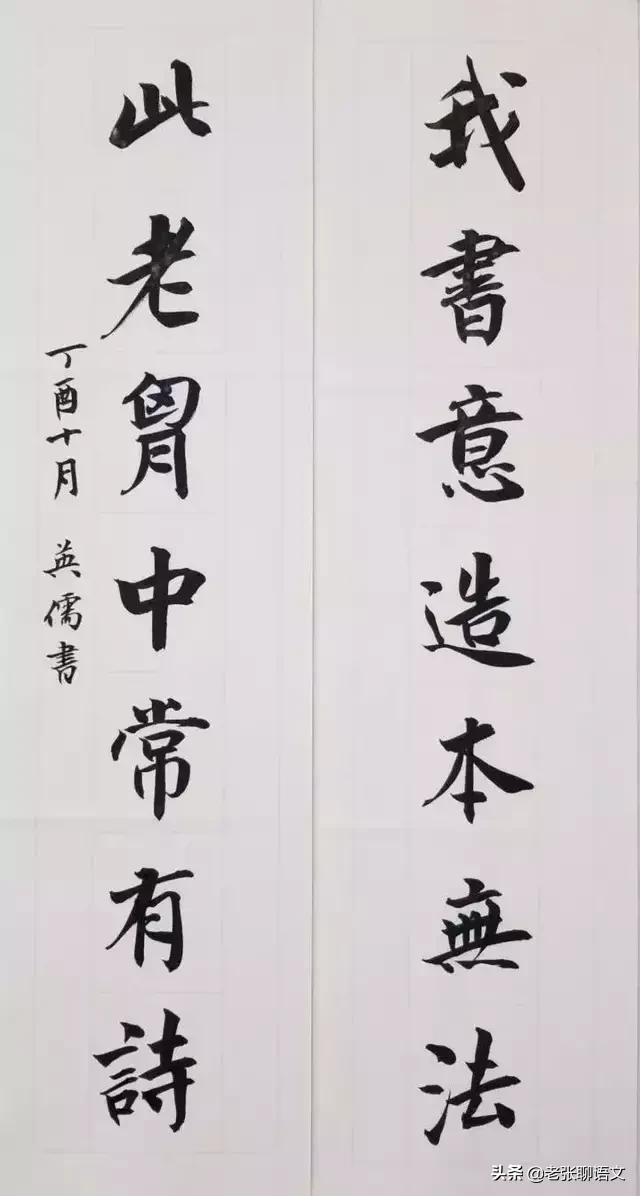 我書意造本無法
此老胷中常有詩
丁酉十月 英儒書
头条 @老张聊语文